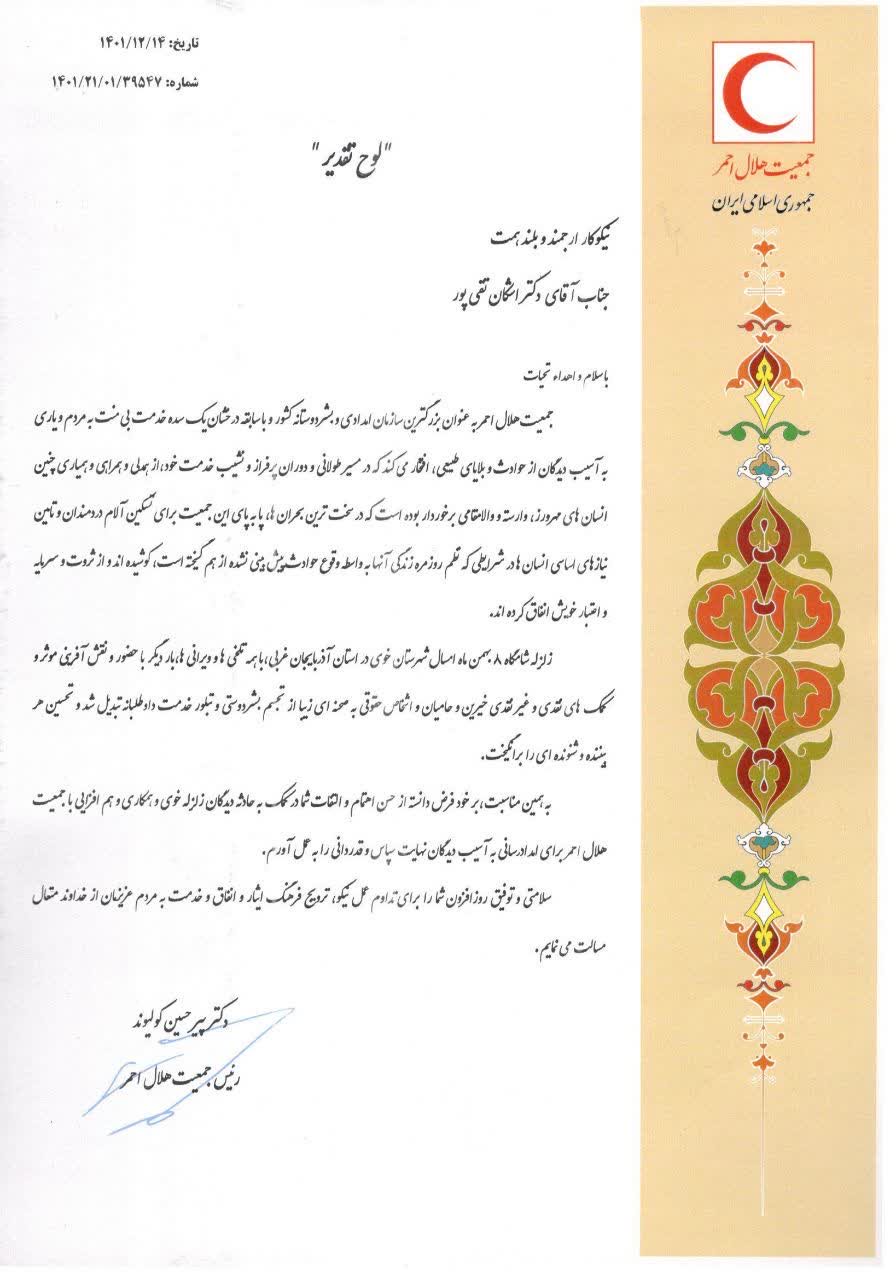 تاریخ: ۱۴۰۱/۱۲/۱۴
شماره: ۱۴۰۱/۲۱/۰۱/۳۹۵۴۷
جمعیت هلال احمر
جمهوری اسلامی ایران
"لوح تقدیر"
نیکوکار ارجمند و بلند همت
جناب آقای دکتر اشکان تقی پور
با سلام و اهداء تحیات
جمعیت هلال احمر به عنوان بزرگترین سازمان امدادی و بشردوستانه کشور و با سابقه درخشان یک سده خدمت بی منت به مردم و یاری
به آسیب دیدگان از حوادث و بلایای طبیعی، افتخار می کند که در مسیر طولانی و دوران پرفراز و نشیب خدمت خود، از همدلی و همراهی و همیاری چنین
انسان های مهرورز، وارسته و والامقامی برخوردار بوده است که در سخت ترین بحران ها، پا به پای این جمعیت برای تسکین آلام دردمندان و تامین
نیازهای اساسی انسان ها در شرایطی که نظم روزمره زندگی آنها به واسطه وقوع حوادث پیش بینی نشده از هم گسیخته است، کوشیده اند و از ثروت و سرمایه
و اعتبار خویش انفاق کرده اند.
زلزله شامگاه ۸ بهمن ماه امسال شهرستان خوی در استان آذربایجان غربی، با همه تلخی ها و ویرانی ها، بار دیگر با حضور و نقش آفرینی موثر و
کمک های نقدی و غیر نقدی خیرین و حامیان و اشخاص حقوقی به صحنه ای زیبا از تجسم بشردوستی و تبلور خدمت داوطلبانه تبدیل شد و تحسین هر
بیننده و شنونده ای را برانگیخت.
به همین مناسبت، بر خود فرض دانسته از حسن اهتمام و التفات شما در کمک به حادثه دیدگان زلزله خوی و همکاری و هم افزایی با جمعیت
هلال احمر برای امدادرسانی به آسیب دیدگان نهایت سپاس و قدردانی را به عمل آورم.
سلامتی و توفیق روزافزون شما را برای تداوم عمل نیکو، ترویج فرهنگ ایثار و انفاق و خدمت به مردم عزیزمان از خداوند متعال
مسالت می نمایم.
دکتر پیرحسین کولیوند
رئیس جمعیت هلال احمر